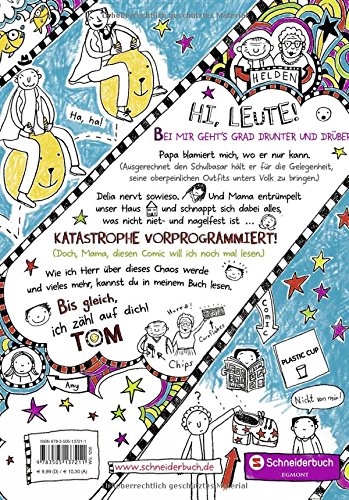 Urheberrechtlich geschütztes Material
HELDEN
Ha, ha!
HI, LEUTE!
BEI MIR GEHT'S GRAD DRUNTER UND DRÜBER
Papa blamiert mich, wo er nur kann.
(Ausgerechnet den Schulbasar hält er für die Gelegenheit,
seine oberpeinlichen Outfits unters Volk zu bringen.)
Delia nervt sowieso. Und Mama entrümpelt
unser Haus und schnappt sich dabei alles,
was nicht niet- und nagelfest ist ...
KATASTROPHE VORPROGRAMMIERT!
(Doch, Mama, diesen Comic will ich noch mal lesen.)
Wie ich Herr über dieses Chaos werde
und vieles mehr, kannst du in meinem Buch lesen.
Bis gleich,
ich zähl auf dich!
TOM
Hurra!
Cornflakes
Chips
Comic
PLASTIC CUP
Amy
Nicht von mir!
ISBN 978-3-505-13721-1
9 783505 137211
€ 9,99 (D) / € 10,30 (A)
www.schneiderbuch.de
Schneiderbuch
EGMONT
Urheberrechtlich geschütztes Material